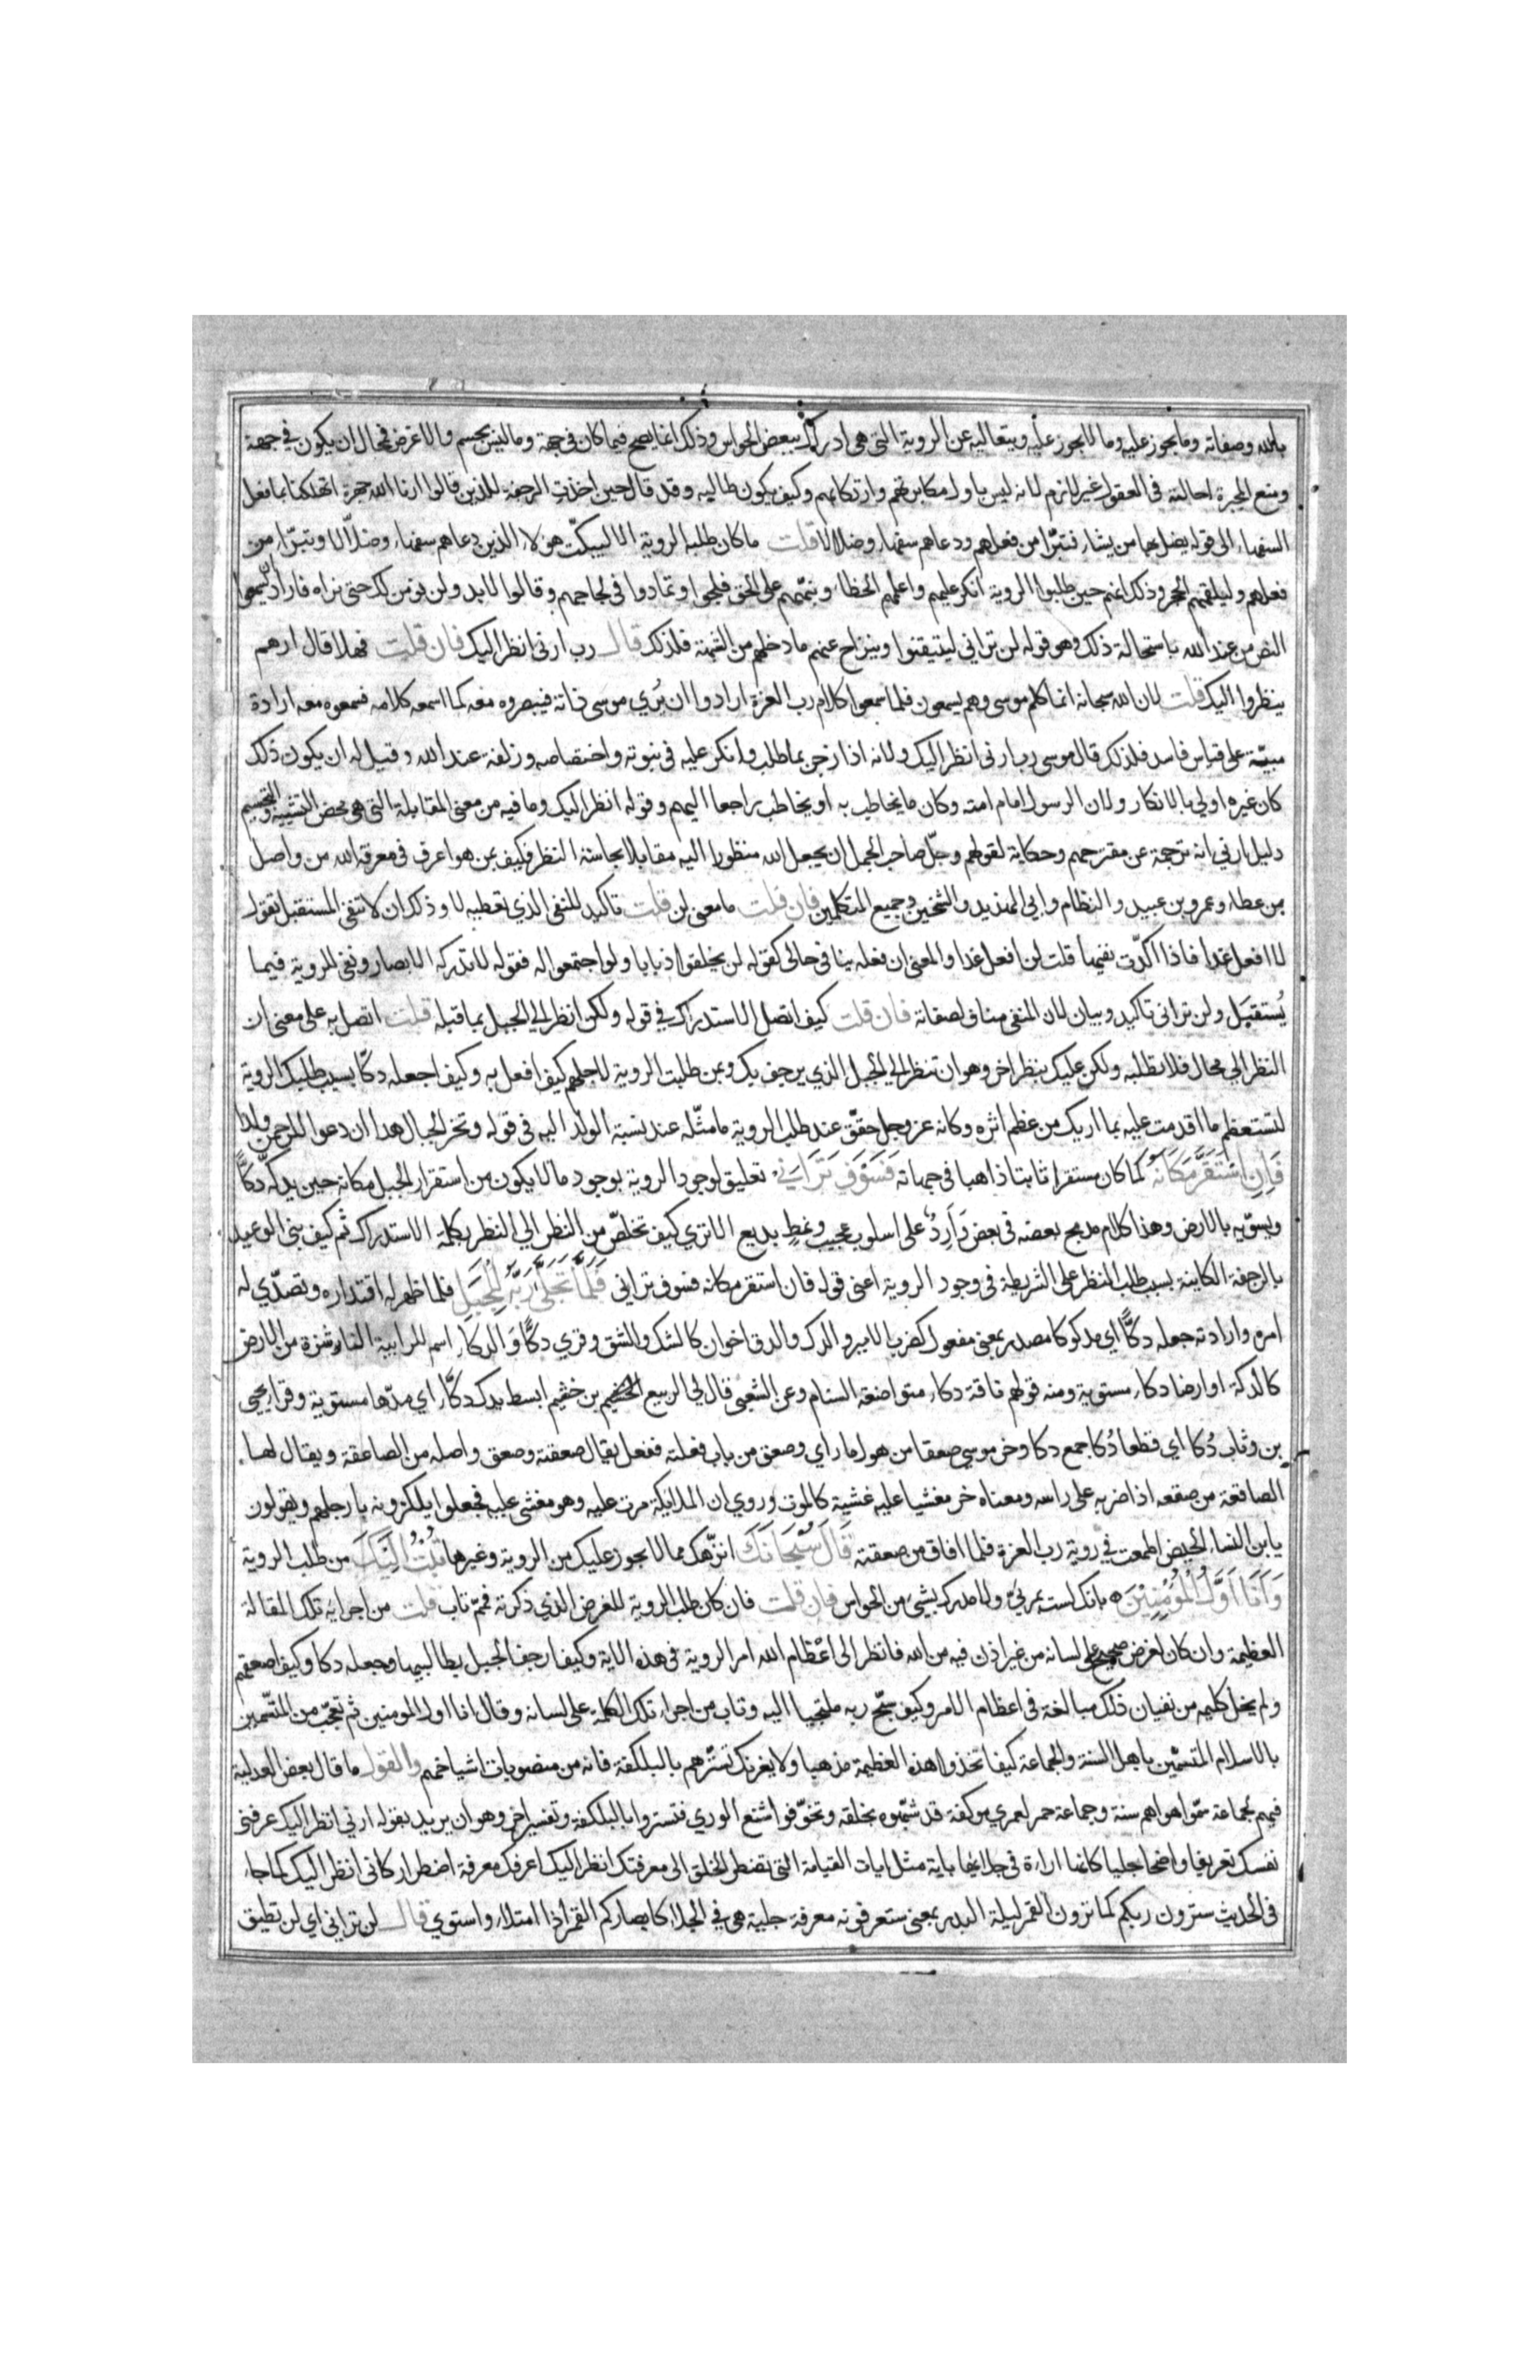 بالله وصفاته وما يجوز عليه وما لا يجوز عليه وبتعاليه عن الروية التي هي ادراك ببعض الحواس وذلك انما يصح فيما كان في جهة وما ليس بجسم ولا عرض فمحال ان يكون في جهة
ومنع المجبرة احالته في العقول غير لازم لانه ليس باول مكابرتهم وارتكابهم وكيف يكون طالبه وقد قال حين اخذت الرجفة الذين قالوا ارنا الله جهرة اتهلكنا بما فعل
السفهاء الى قوله يضل بها من يشاء فتبرا من فعلهم ودعاهم سفهاء وضلالا قلت ما كان طلبه الروية الا ليبكّت هولاء الذين دعاهم سفهاء وضلّالا وتبرّا من
فعلهم وليلقمهم الحجر وذلك انهم حين طلبوا الروية انكر عليهم واعلمهم الخطا ونبّههم على الحق فلجوا وتمادوا في لجاجهم وقالوا لا بد ولن نومن لك حتى نراه فاراد ان يسمعوا
النص من عند الله باستحالة ذلك وهو قوله لن تراني ليتيقنوا وينزاح عنهم ما دخلهم من الشبهة فلذلك قال رب ارني انظر اليك فان قلت فهلا قال ارهم
ينظروا اليك قلت لان الله سبحانه انما كلم موسى وهم يسمعون فلما سمعوا كلام رب العزة ارادوا ان يُري موسى ذاته فيبصروه معه كما اسمعه كلامه فسمعوه معه ارادة
مبنيّة على قياس فاسد فلذلك قال موسى رب ارني انظر اليك ولانه اذا زجر عما طلب وانكر عليه في نبوته واختصاصه وزلفته عند الله وقيل له ان يكون ذلك
كان غيره اولي بالانكار ولان الرسول امام امته وكان ما يخاطب به او يخاطب راجعا اليهم وقوله انظر اليك وما فيه من معنى المقابلة التي هي محض التشبيه والتجسيم
دليل بان في انه ترجمة عن مقترحهم وحكاية لقولهم وجلّ صاحب الجمل ان يجعل الله منظورا اليه مقابلا بحاسة النظر فكيف بمن هو اعرف في معرفة الله من واصل
بن عطاء وعمرو بن عبيد والنظام وابي الهذيل والشيخين وجميع المتكلمين فان قلت ما معنى لن قلت تاكيد للنفى الذي تعطيه لا وذلك ان لا تنفى المستقبل تقول
لا افعل غدا فاذا اكدّت نفيها قلت لن افعل غدا والمعنى ان فعله ينافي حالى كقوله لن يخلقوا ذبابا ولو اجتمعوا له فقوله لا تدركه الابصار ونفى للروية فيما
يُستقبَل ولن تراني تاكيد وبيان لان المنفى مناف لصفاته فان قلت كيف اتصل الاستدراك في قوله ولكن انظر الي الجبل بما قبله قلت اتصل به على معنى ان
النظر الي محال فلا تطلبه ولكن عليك بنظر اخر وهو ان تنظر الي الجبل الذي يرجف بك وبمن طلبت الروية لاجلهم كيف افعل به وكيف اجعله دكّا بسبب طلبك الروية
لتستعظم ما اقدمت عليه بما اريك من عظم اثره وكانه عز وجل حقّق عند طلب الروية ما مثّله عند نسبة الولد اليه في قوله وتخر الجبال هدا ان دعوا للرحمن ولدا
فَاِنِ اسْتَقَرَّ مَكَانَهُ كما كان مستقرا ثابتا ذاهبا في جهاته فَسَوْفَ تَرَانِي تعليق لوجود الروية بوجود ما لا يكون من استقرار الجبل مكانه حين يدكّه دكّا
ويسوّيه بالارض وهذا كلام مدمج بعضه في بعض وَارِدٌ على اسلوب عجيب ونمطٍ بديع الا تري كيف تخلصّ من النظر الي النظر بكلمة الاستدراك ثم كيف بنى الوعيد
بالرجفة الكاينة بسبب طلب النظر على الشريطة في وجود الروية اعنى قوله فان استقر مكانه فسوف تراني فَلَمَّا تَجَلَّى رَبُّهُ لِلْجَبَلِ فلما ظهر له اقتداره وتصدّي له
امره وارادته جعله دكًّا اي مدكوكا مصدر بمعنى مفعول كضرب الامير والدك والدق اخوان كالشك والشق وقري دكًّا وَالدكاء اسم للرابية الناشزة من الارض
كالدكة او ارضا دكاء مستوية ومنه قولهم ناقة دكاء متواضعة السنام وعن الشعبى قال لى الربيع بن خثيم ابسط يدك دكًّا اي مدّها مستوية وقرا يحيى
بن وثاب دُكا اي قطعا دُكا جمع دكا وخر موسي صعقا من هول ما راي وصعق من باب فعلته ففعل يقال صعقته وصعق واصله من الصاعقة ويقال لها
الصاقعة من صقعه اذا ضربه على راسه ومعناه خر مغشيا عليه غشية كالموت وروي ان الملايكة مرت عليه وهو مغشى عليه فجعلوا يلكزونه بارجلهم ويقولون
يا ابن النساء الحيض اطمعت في روية رب العزة فلما افاق من صعقته قَالَ سُبْحَانَكَ انزّهك مما لا يجوز عليك من الروية وغيرها تُبْتُ اِلَيْكَ من طلب الروية
وَاَنَا اَوَّلُ الْمُؤْمِنِيْنَ بانك لست بمرئي ولا مدرك بشيء من الحواس فان قلت فان كان طلب الروية للغرض الذي ذكرته فممّ تاب قلت من اجرايه تلك المقالة
العظيمة وان كان لغرض صحيح على لسانه من غير اذن فيه من الله فانظر الى اعْظام الله امر الروية في هذه الاية وكيف ارجف الجبل بطالبيها وجعله دكا وكيف اصعقهم
ولم يخل كليمه من نفيان ذلك مبالغة في اعظام الامر وكيف سبّح ربه ملتجيا اليه وتاب من اجراء تلك الكلمة على لسانه وقال انا اول المومنين ثم تعجّب من المتسّمين
بالاسلام المتسّمين باهل السنة والجماعة كيف اتخذوا هذه العظيمة مذهبا ولا يغرنك تستّرهم بالبلكفة فانه من منصوبات اشياخهم والقول ما قال بعض العدلية
فيهم لجماعة سمّوا هواهم سنة وجماعة حمر لعمري موكفة قد شبّهوه بخلقه وتخوّفوا شنع الوري فتستروا بالبلكفة وتفسير اخر وهو ان يريد بقوله ارني انظر اليك عرفنى
نفسك تعريفا واضحا جليا كانما اراءة في جلائها باية مثل ايات القيامة التي تضطر الخلق الى معرفتك انظر اليك اعرفك معرفة اضطرار كاني انظر اليك كما جاء
في الحديث سترون ربكم كما ترون القمر ليلة البدر بمعنى ستعرفونه معرفة جلية هي في الجلاء كابصاركم القمر اذا امتلاء واستوي قال لن تراني اي لن تطيق